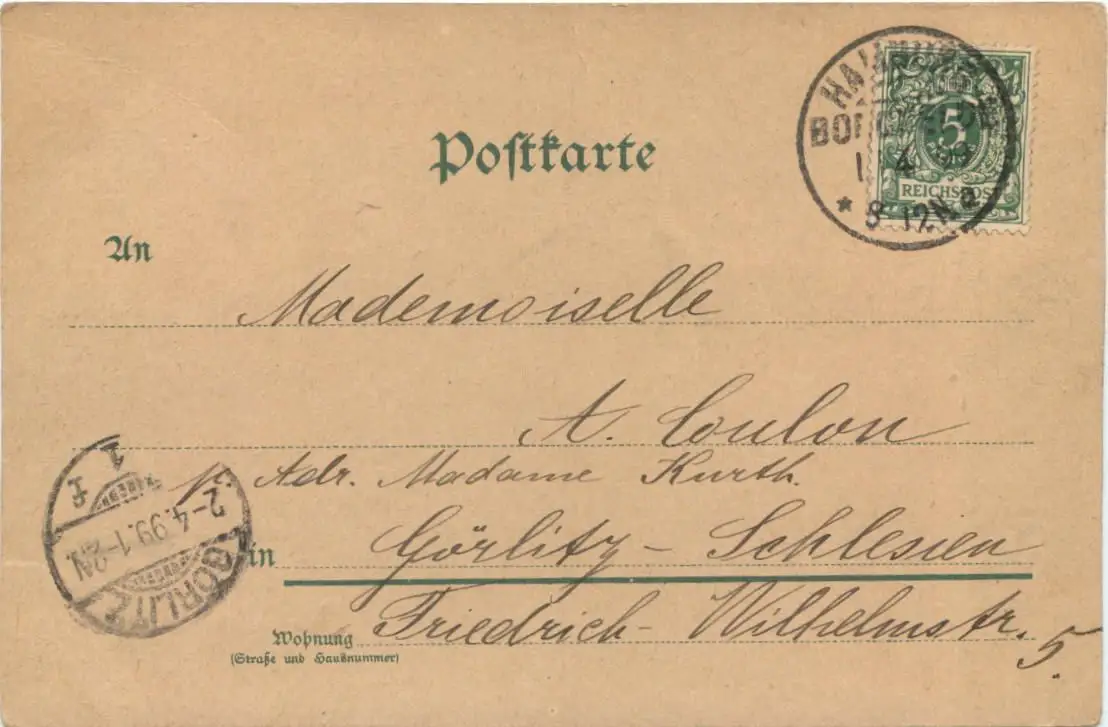 Postkarte
HAMBURG
BORGFELDE
1. 4. 99
* 8-12N. a
5
PFENNIG
REICHSPOST
An
Mademoiselle
A. Coulon
p. Adr. Madame Kurth.
in Görlitz – Schlesien
Wohnung Friedrich-Wilhelmstr. 5.
(Straße und Hausnummer)
GÖRLITZ
2-4.99.1-2N.
1